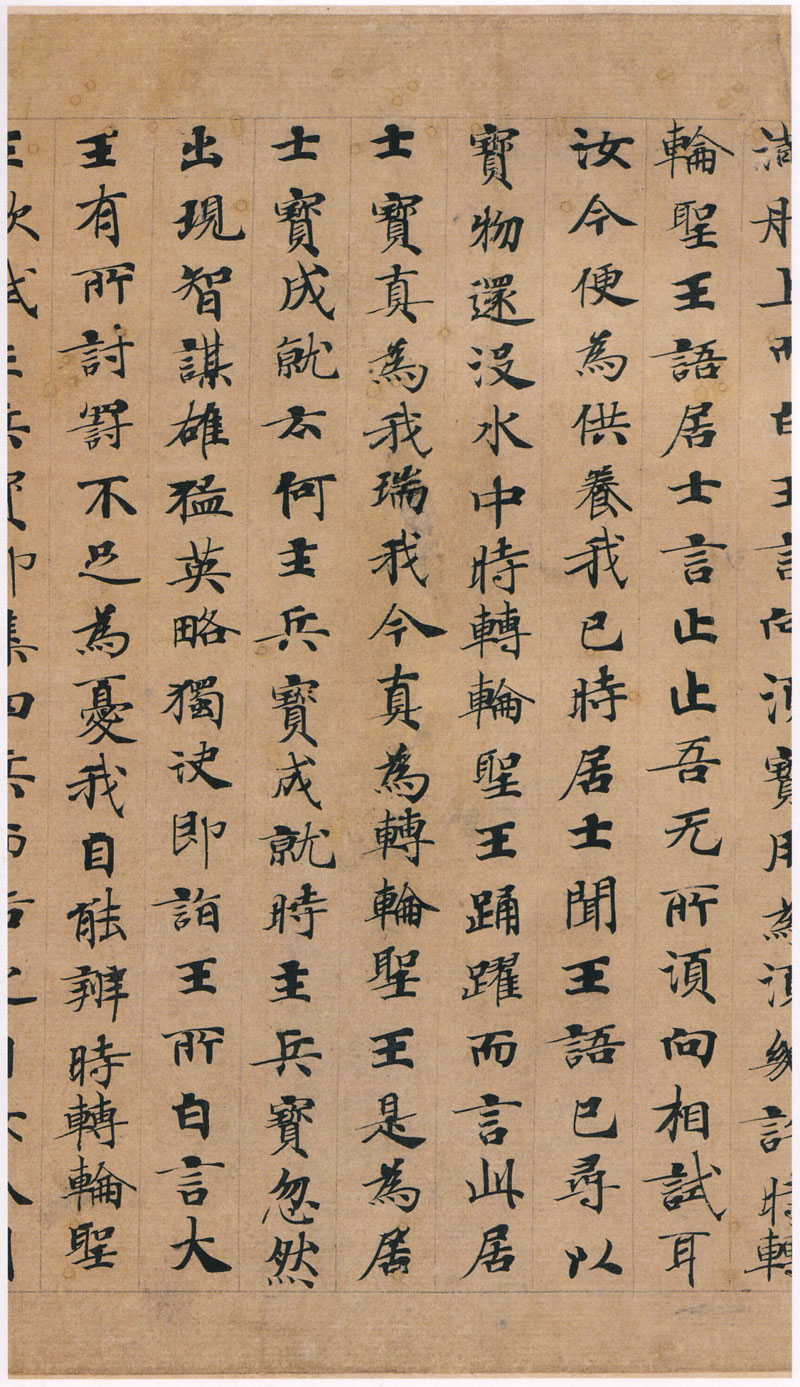 上而白王言向須寶用為須幾許時轉
輪聖王語居士言止止吾无所須向相試耳
汝今便為供養我已時居士聞王語已尋以
寶物還沒水中時轉輪聖王踊躍而言此居
士寶真為我瑞我今真為轉輪聖王是為居
士寶成就云何主兵寶成就時主兵寶忽然
出現智謀雄猛英略獨決即詣王所白言大
王有所討罰不足為憂我自能辦時轉輪聖
王欲試主兵寶即集四兵而告之曰